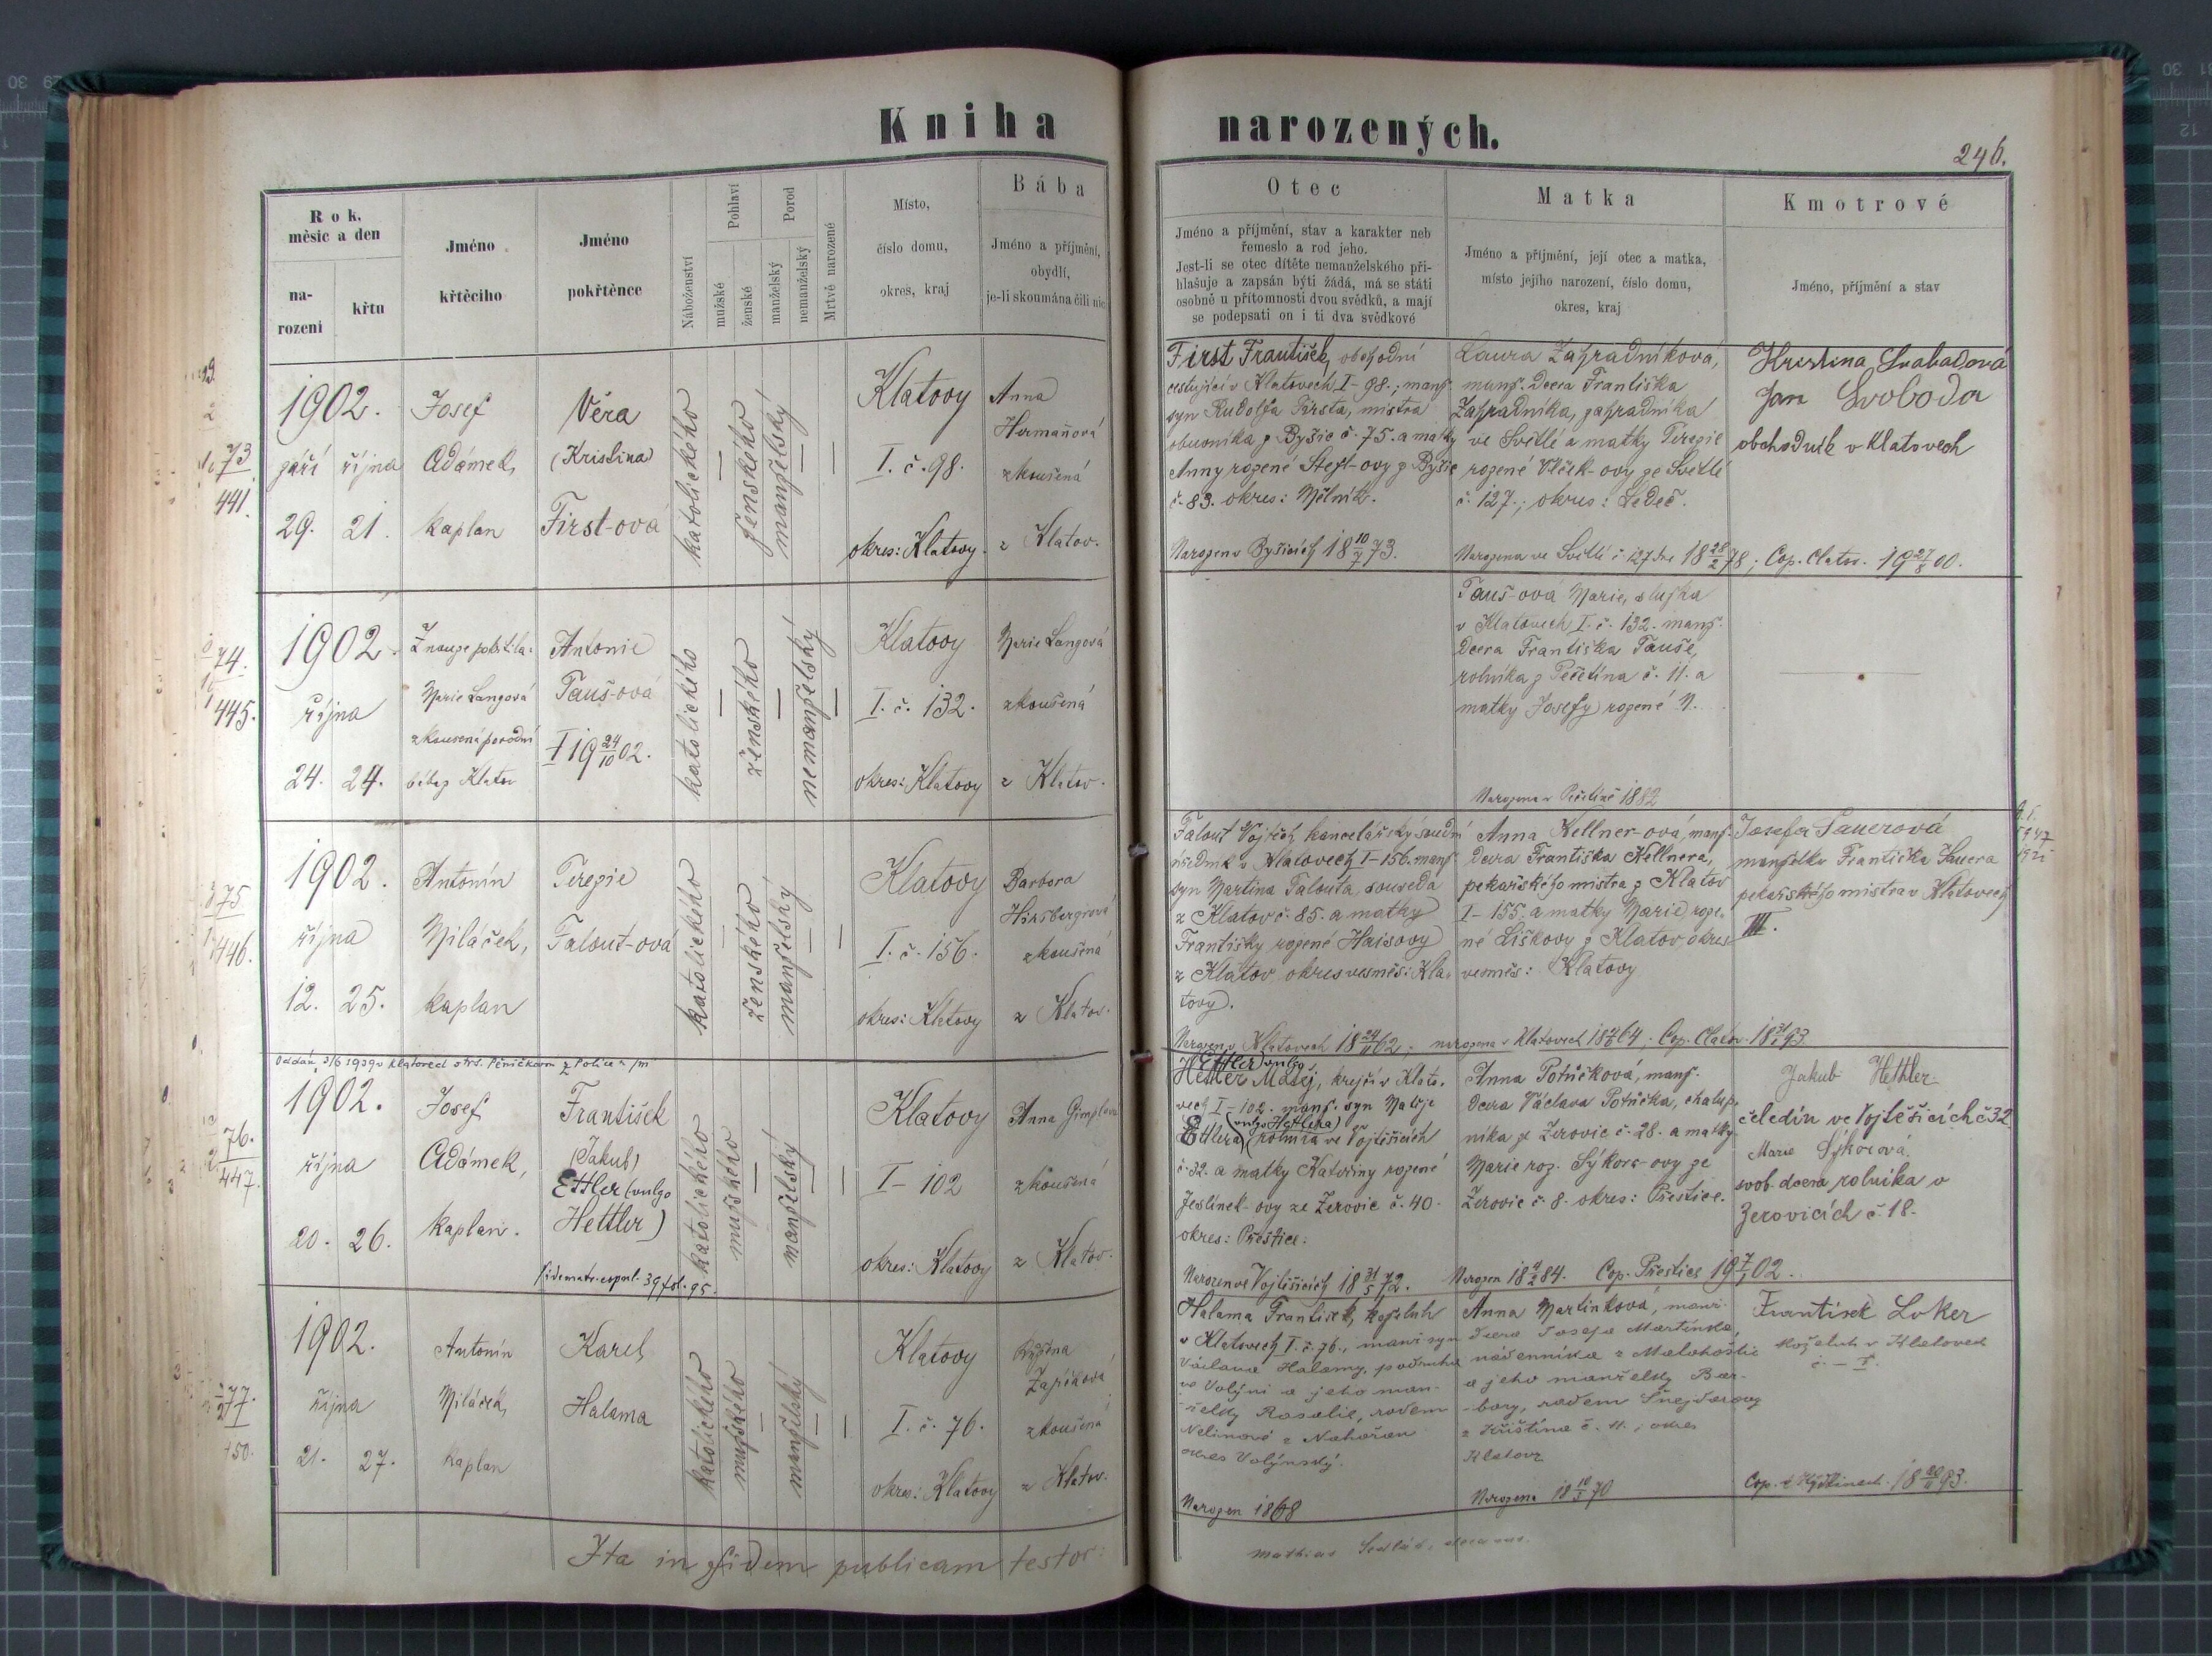 Kniha narozených.
246.
Rok, měsíc a den
narození
křtu
Jméno křtěcího
Jméno pokřtěnce
Náboženství
Pohlaví
mužské
ženské
Porod
manželský
nemanželský
Mrtvě narozené
Místo,
číslo domu,
okres, kraj
Bába
Jméno a příjmění,
obydlí,
je-li zkoumána čili nic
Otec
Jméno a příjmění, stav a karakter neb
řemeslo a rod jeho.
Jest-li se otec dítěte nemanželského při-
hlašuje a zapsán býti žádá, má se státi
osobně u přítomnosti dvou svědků, a mají
se podepsati on i ti dva svědkové
Matka
Jméno a příjmění, její otec a matka,
místo jejího narození, číslo domu,
okres, kraj
Kmotrové
Jméno, příjmění a stav
73
441.
1902.
září
října
29.
21.
Josef
Adámek,
kaplan
Věra
(Kristina)
First-ová
katolického
ženského
manželský
Klatovy
I. č. 98.
okres: Klatovy.
Anna
Heřmaňová
zkoušená
z Klatov.
First František, obchodní
cestující v Klatovech I-98.; manž.
syn Rudolfa Firsta, mistra
obuvníka z Byšic č. 75. a matky
Anny rozené Stejf-ovy z Byšic
č. 83. okres: Mělník.
Narozen v Byšicích 18 10/7 73.
Laura Zahradníková,
manž. dcera Františka
Zahradníka, zahradníka
ve Světlé a matky Terezie
rozené Vlček-ovy ze Světlé
č. 127.; okres: Ledeč.
Narozena ve Světlé č. 127 dne 18 28/2 78; Cop. Clatov. 19 27/8 00.
Kristina Svobodová
Jan Svoboda
obchodník v Klatovech
74.
445.
1902.
října
24. 24.
Z nouze pokřtila:
Marie Langová
zkoušená porodní
bába z Klatov
Antonie
Tauš-ová
† 19 24/10 02.
katolického
ženského
nemanželský
Klatovy
I. č. 132.
okres: Klatovy
Marie Langová
zkoušená
z Klatov.
Tauš-ová Marie, služka
v Klatovech I. č. 132. manž.
dcera Františka Tauše,
rolníka z Pečetína č. 11. a
matky Josefy rozené N.
Narozena v Pečetíně 1882
75
446.
1902.
října
12. 25.
Antonín
Miláček,
kaplan
Terezie
Talout-ová
katolického
ženského
manželský
Klatovy
I. č. 156.
okres: Klatovy
Barbora
zkoušená
z Klatov.
Talout Vojtěch, kancelářský soudní
úředník v Klatovech I-156. manž.
syn Martina Talouta, souseda
z Klatov č. 85. a matky
Františky rozené Haisovy
z Klatov okres vesměs: Kla-
tovy.
Narozen v Klatovech 18 24/11 62;
Anna Kellner-ová, manž.
dcera Františka Kellnera,
pekařského mistra z Klatov
I-155. a matky Marie, roze-
né Liškovy z Klatov, okres
vesměs: Klatovy
Josefa Sauerová
manželka Františka Sauera
pekařského mistra v Klatovech
III.
76.
447.
1902.
října
20. 26.
Josef
Adámek,
kaplan.
František
(Jakub)
Ettler (vulgo
Hettler)
katolického
mužského
manželský
Klatovy
I-102
okres: Klatovy
Anna
zkoušená
z Klatov.
(Ettler) vulgo
Hettler Matěj, krejčí v Klato-
vech I-102. manž. syn Matěje
Ettlera (vulgo Hettlera) rolníka ve Vojtěšicích
č. 32. a matky Kateřiny rozené
Jeslínek-ovy ze Žerovic č. 40.
okres: Přeštice.
Narozen ve Vojtěšicích 18 31/5 72.
Anna Potůčková, manž.
dcera Václava Potůčka, chalup-
níka ze Žerovic č. 28. a matky
Marie roz. Sýkora-ovy ze
Žerovic č. 8. okres: Přeštice.
Cop. Přestice 19 7/1 02.
Jakub Hettler
čeledín ve Vojtěšicích č 32
Marie Sýkorová,
svob. dcera rolníka v
Žerovicích č. 18.
77.
450.
1902.
října
21. 27.
Antonín
Miláček,
kaplan
Karel
Halama
katolického
mužského
manželský
Klatovy
I. č. 76.
okres: Klatovy
zkoušená
z Klatov.
Halama František, koželuh
v Klatovech I. č. 76., manž. syn
Václava Halamy, podruha
ve Volyni a jeho man-
želky Rosalie, rodem
okres Volyňský.
Narozen 1868
Anna Martínková, manž.
dcera Josefa Martínka,
nádenníka z Malechostic
a jeho manželky Bar-
bory, rodem Šnejdarovy
okres
Klatovy
Narozena
František Loker
koželuh v Klatovech
č. – I.
Ita in fidem publicam testor: